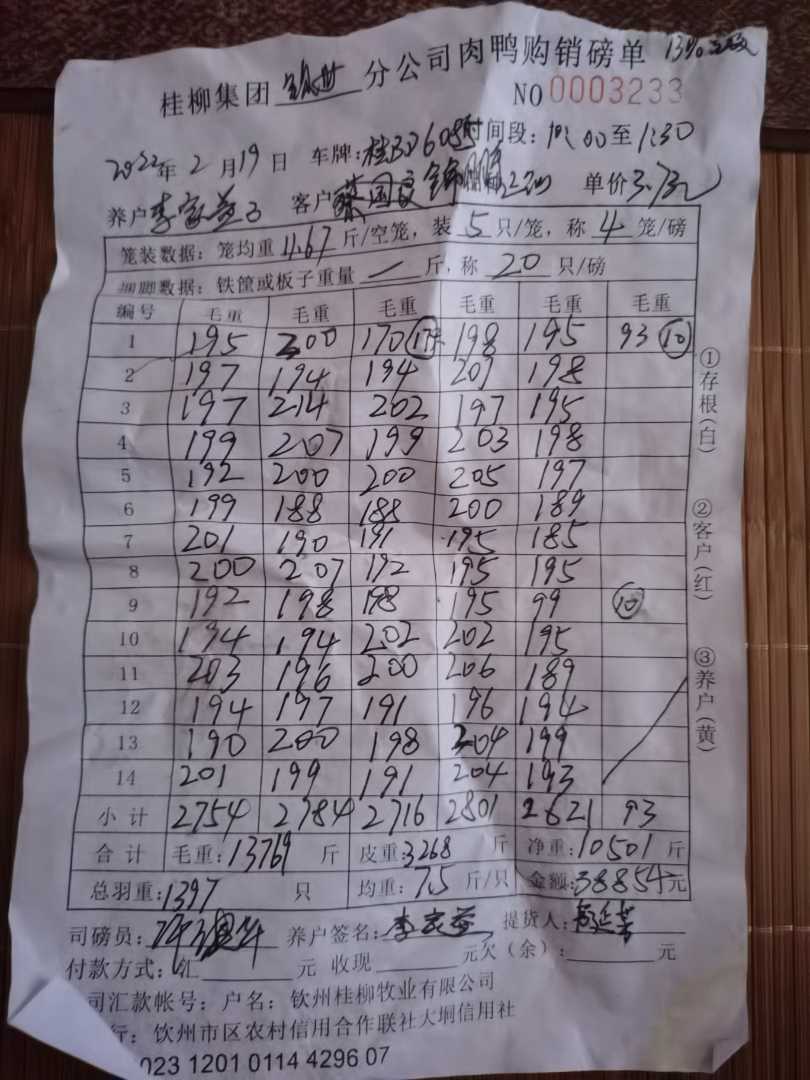 桂柳集团 分公司肉鸭购销磅单 13%
NO 0003233
2022年2月19日 车牌:桂 时间段: 至1:30
养户李家益 客户 单价3.7元
笼装数据：笼均重11.67斤/空笼，装5只/笼，称4笼/磅
捆脚数据：铁筐或板子重量一斤，称20只/磅
编号 毛重 毛重 毛重 毛重 毛重 毛重
1 195 200 170 198 195 93 ⑩
2 197 194 194 207 198
3 197 214 202 197 195
4 199 207 199 203 198
5 192 200 200 205 197
6 199 188 188 200 189
7 201 190 191 195 185
8 200 207 192 195 195
9 192 198 198 195 99 ⑩
10 194 194 202 202 195
11 203 196 200 206 189
12 194 197 191 196 194
13 190 200 198 204 199
14 201 199 191 204 193
小计 2754 2784 2716 2801 2621 93
合计 毛重:13769斤 皮重:3268斤 净重:10501斤
总羽重:1397只 均重:7.5斤/只 金额:38854元
司磅员: 养户签名:李家益 提货人:
付款方式:汇 元 收现 元欠（余）: 元
司汇款帐号：户名：钦州桂柳牧业有限公司
行：钦州市区农村信用合作联社大垌信用社
023 1201 0114 4296 07
①存根(白)
②客户(红)
③养户(黄)